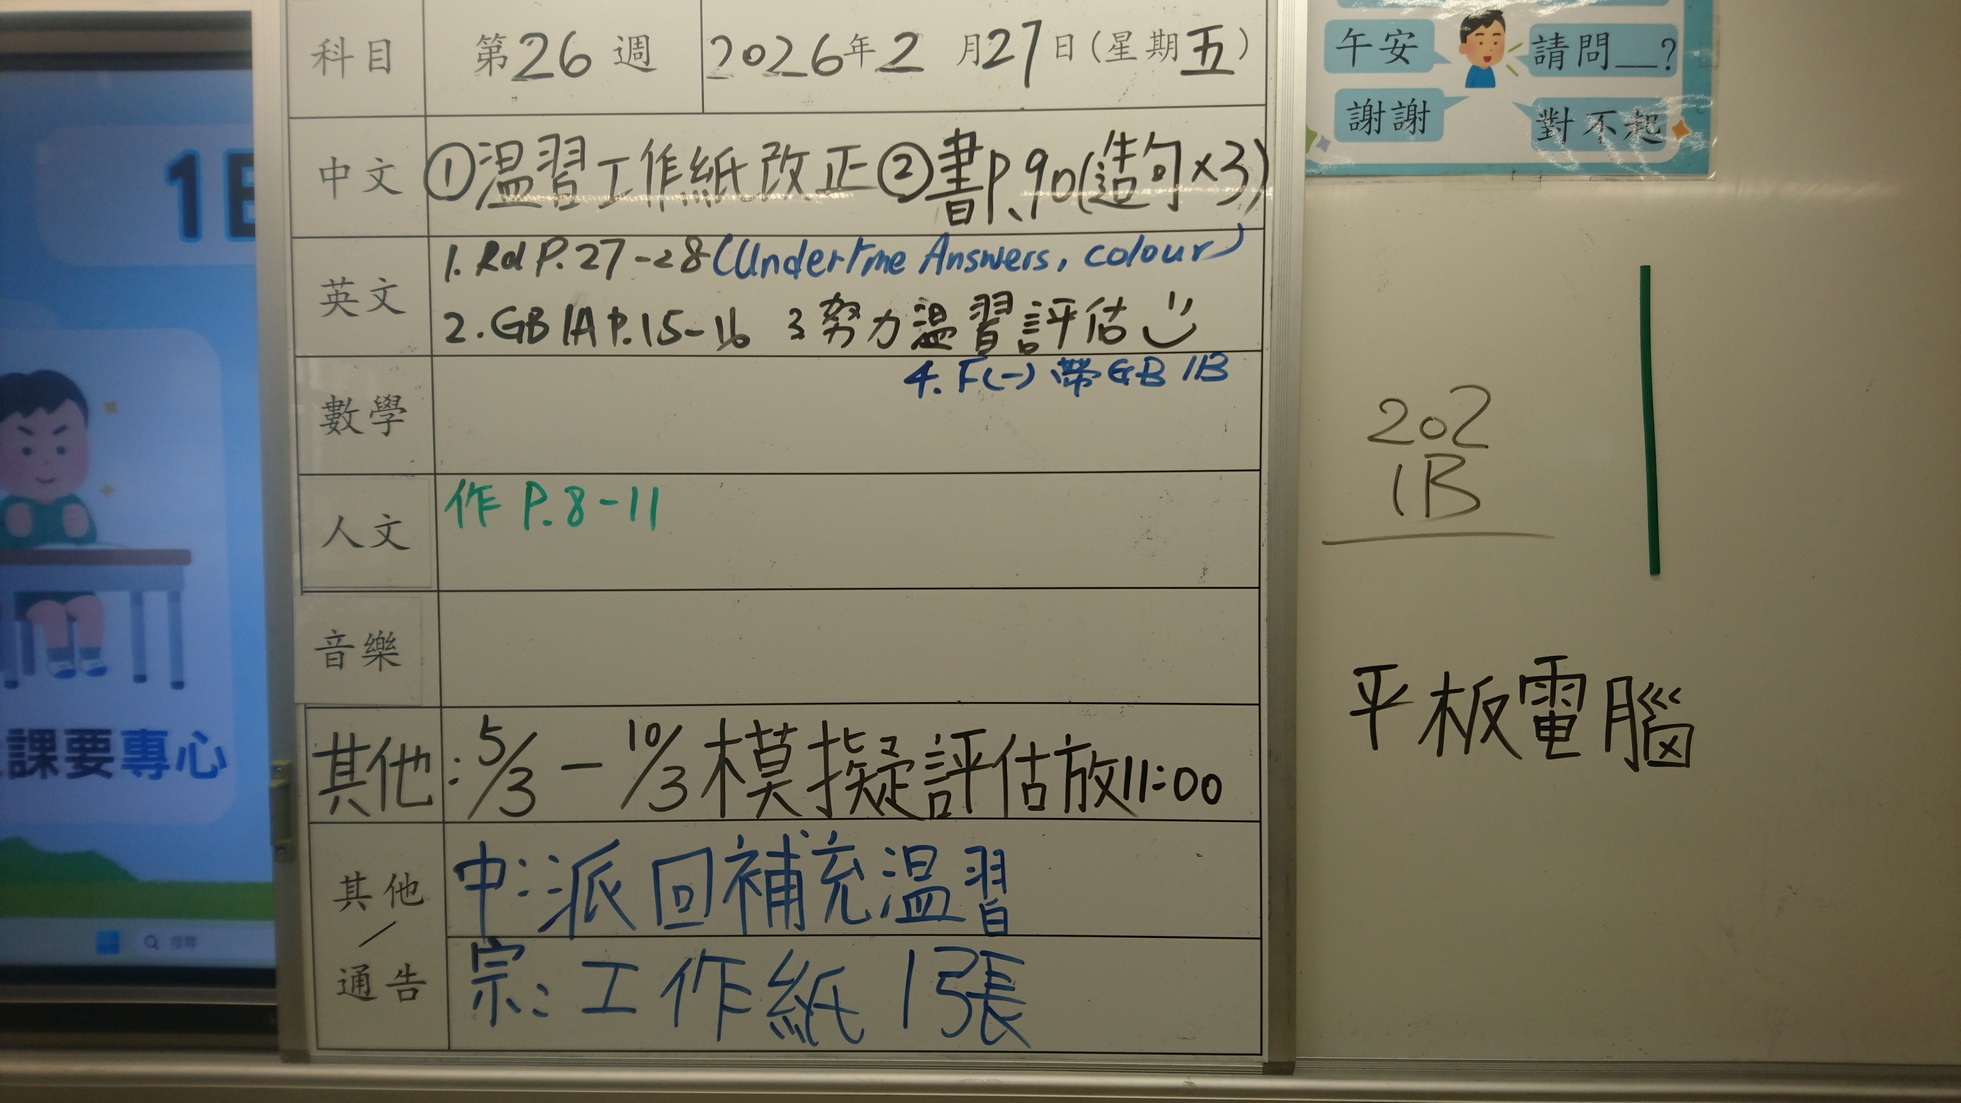 科目 第26週 2026年2月27日(星期五)
中文 ①溫習工作紙改正②書P.90(造句×3)
英文 1. Rd P.27-28(Underline Answers, colour)
2. GB 1A P.15-16 3 努力溫習評估
4. F(一) 帶GB 1B
數學
人文 作 P.8-11
音樂
其他: 5/3 — 10/3 模擬評估放11:00
其他/通告
中: 派回補充溫習
宗: 工作紙 1張
午安 請問__?
謝謝 對不起
202
1B
平板電腦
課要專心
搜尋